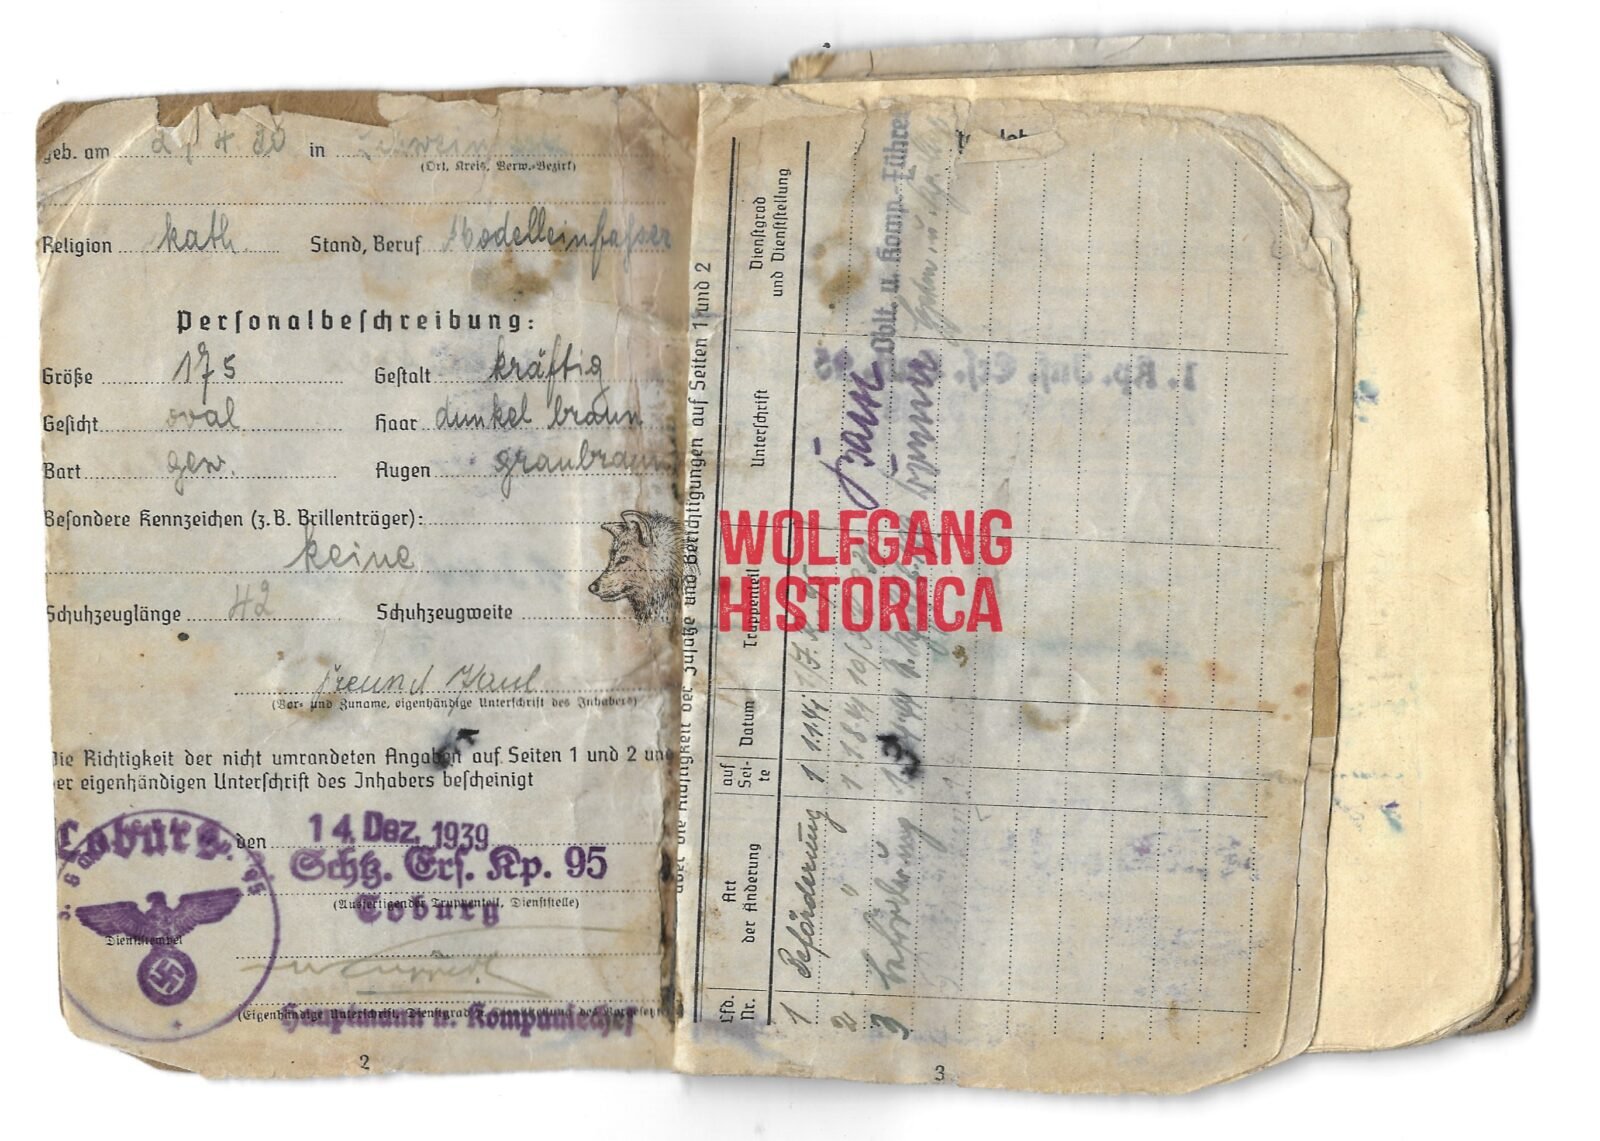 geb. am 2/4.20 in
(Ort, Kreis, Verw.-Bezirk)
Religion kath. Stand, Beruf Modelleinfasser
Personalbeschreibung:
Größe 175 Gestalt kräftig
Gesicht oval Haar dunkel braun
Bart gew. Augen graubraun
Besondere Kennzeichen (z. B. Brillenträger):
keine
Schuhzeuglänge 42 Schuhzeugweite
Freund Paul
(Vor- und Zuname, eigenhändige Unterschrift des Inhabers)
Die Richtigkeit der nicht umrandeten Angaben auf Seiten 1 und 2 und
der eigenhändigen Unterschrift des Inhabers bescheinigt
Coburg, den 14. Dez. 1939
Schtz. Ers. Kp. 95
(Ausfertigender Truppenteil, Dienststelle)
Coburg
Dienststempel
(Eigenhändige Unterschrift, Dienstgrad u. Dienststellung des Vorgesetzten)
Hauptmann u. Kompaniechef
2
über die Richtigkeit der Zusätze und Berichtigungen auf Seiten 1 und 2
Lfd. Nr. Art der Änderung auf Seite Datum Truppenteil Unterschrift Dienstgrad und Dienststellung
1 Beförderung 1 1.1.41 Oblt. u. Komp.-Führer
2 " 1 1.8.41
3 1
1. Kp. Inf. Ers. 95
3
WOLFGANG
HISTORICA